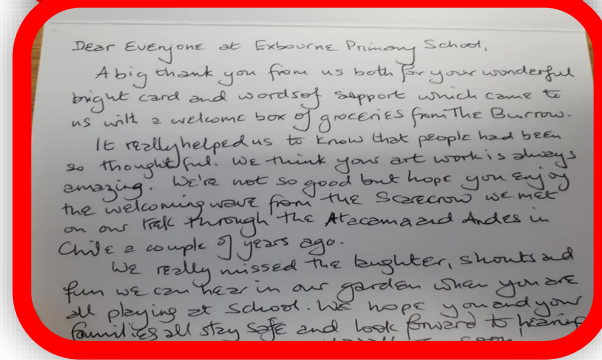 Dear Everyone at Exbourne Primary School,
A big thank you from us both for your wonderful
bright card and words of support which came to
us with a welcome box of groceries from The Burrow.
It really helped us to know that people had been
so thoughtful. We think your art work is always
amazing. We're not so good but hope you enjoy
the welcoming wave from the Scarecrow we met
on our trek through the Atacama and Andes in
Chile a couple of years ago.
We really missed the laughter, shouts and
fun we can hear in our garden when you are
all playing at school. We hope you and your
families all stay safe and look forward to hearing